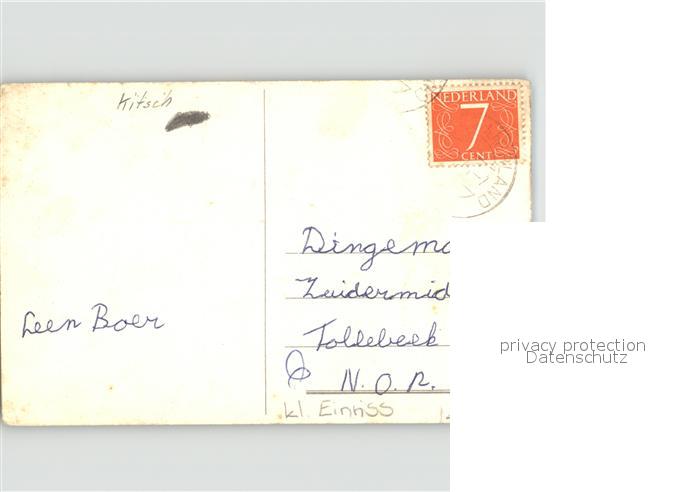 Kitsch
NEDERLAND
7
CENT
LAND
Dingema
Zuidermid
Leen Boer
Tollebeek
N.O.P.
kl. Einriss
privacy protection
Datenschutz